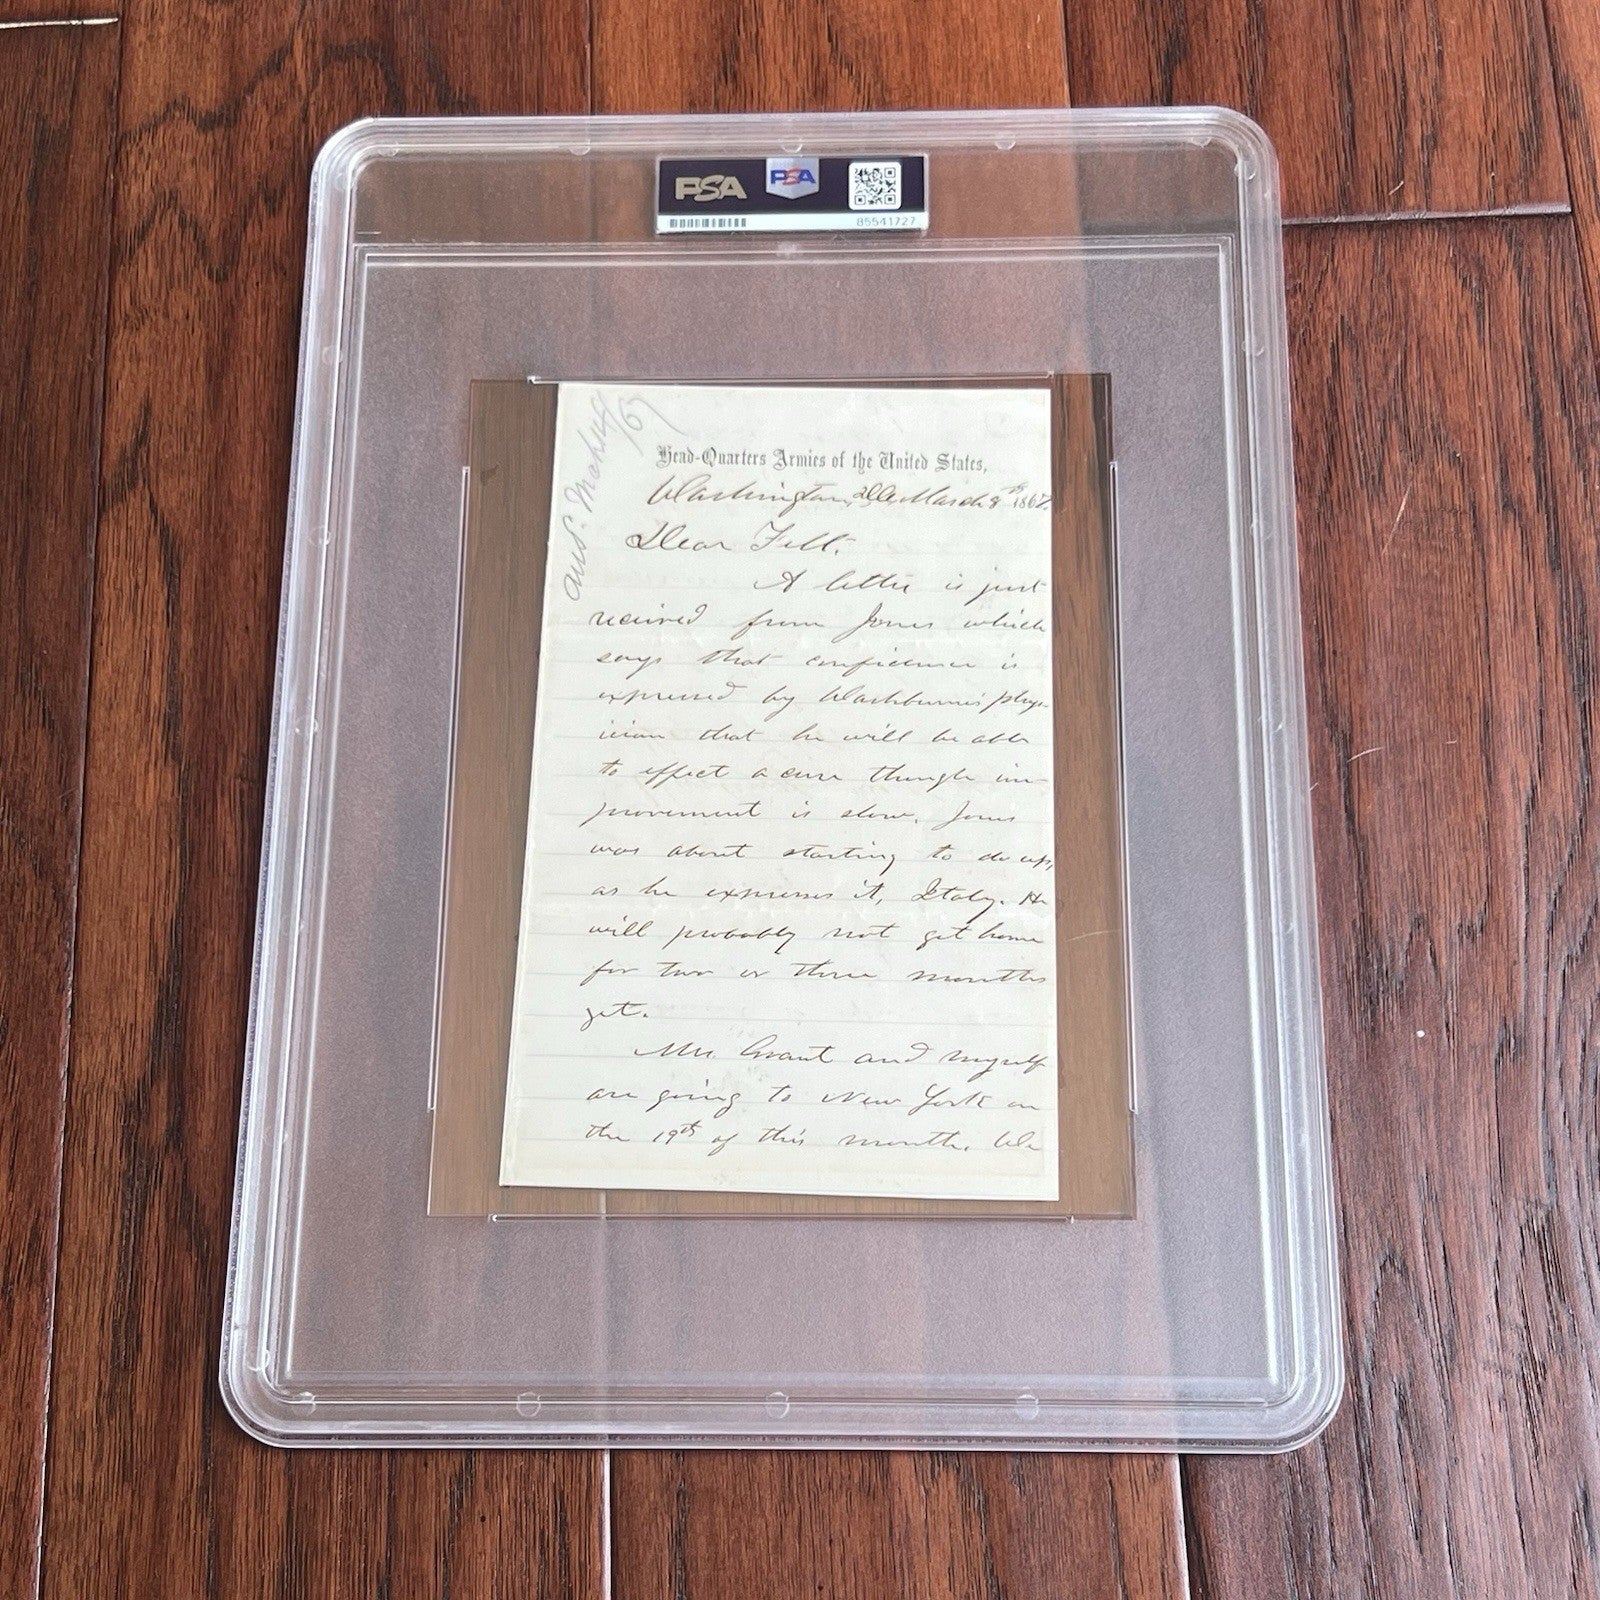 PSA
PSA
85541727
Ans. March 11th/67
Head-Quarters Armies of the United States,
Washington, D.C. March 8th 1867.
Dear Felt;
A letter is just
received from Jones which
says that confidence is
expressed by Washburne's phys-
ician that he will be able
to effect a cure though im-
provement is slow. Jones
was about starting to do up,
as he expresses it, Italy. He
will probably not get home
for two or three months
yet.
Mrs. Grant and myself
are going to New York on
the 19th of this month. We